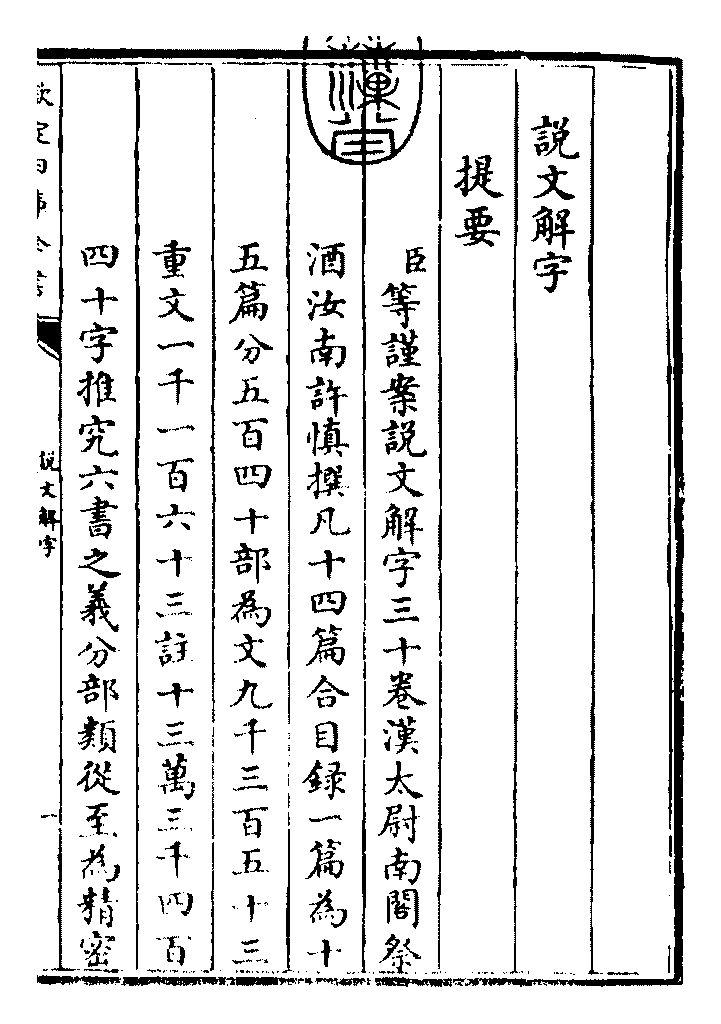 說文解字
提要
臣等謹案說文解字三十卷漢太尉南閣祭
酒汝南許慎撰凡十四篇合目録一篇為十
五篇分五百四十部為文九千三百五十三
重文一千一百六十三註十三萬三千四百
四十字推究六書之義分部類從至為精密
說文解字
一